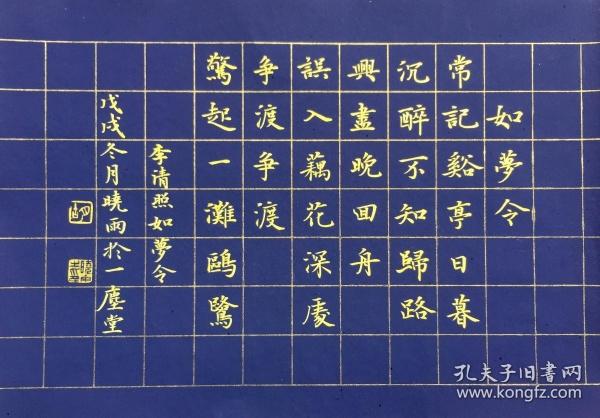 如夢令
常記谿亭日暮
沉醉不知歸路
興盡晚回舟
誤入藕花深處
争渡争渡
驚起一灘鷗鷺
李清照如夢令
戊戌冬月曉雨於一塵堂
孔夫子旧书网
www.kongfz.com